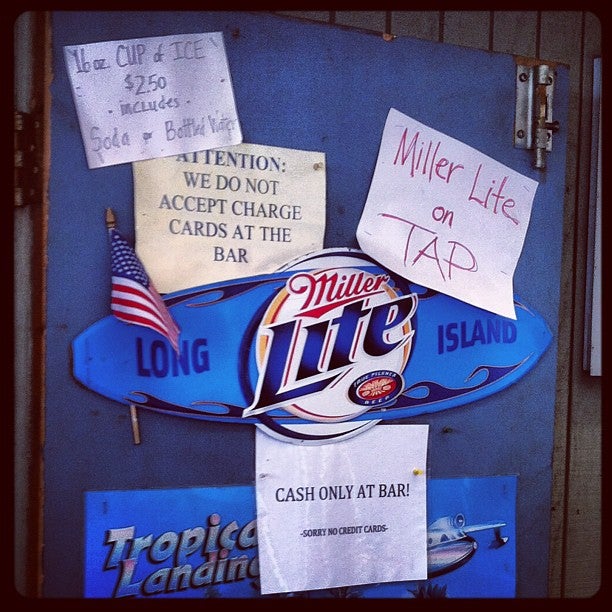 16 oz. CUP of ICE
$2.50
- includes -
Soda or Bottled Water
ATTENTION:
WE DO NOT
ACCEPT CHARGE
CARDS AT THE
BAR
Miller Lite
on
TAP
LONG
Miller
Lite
ISLAND
TRUE PILSNER
BEER
CASH ONLY AT BAR!
-SORRY NO CREDIT CARDS-
Tropica
Landing